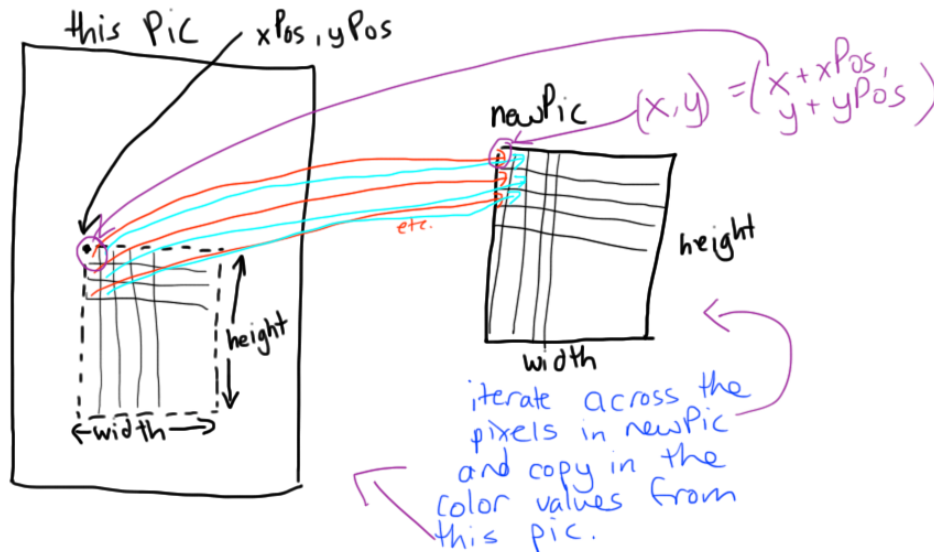 this Pic
xPos, yPos
newPic
(x,y) = (x+xPos,
y+yPos)
etc.
height
height
width
width
iterate across the
pixels in newPic
and copy in the
color values from
this pic.